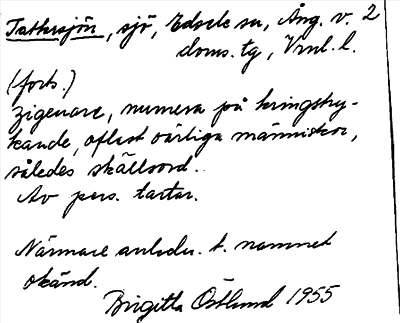 Tattarsjön, sjö, Edsele sn, Ång. v. 2
doms. tg, Vrnl. l.
(forts.)
zigenare, numera på kringstry-
kande, oftast oärliga människor,
således skällsord.
Av pers. tartar.
Närmare anledn. t. namnet
okänd.
Birgitta Östlund 1955